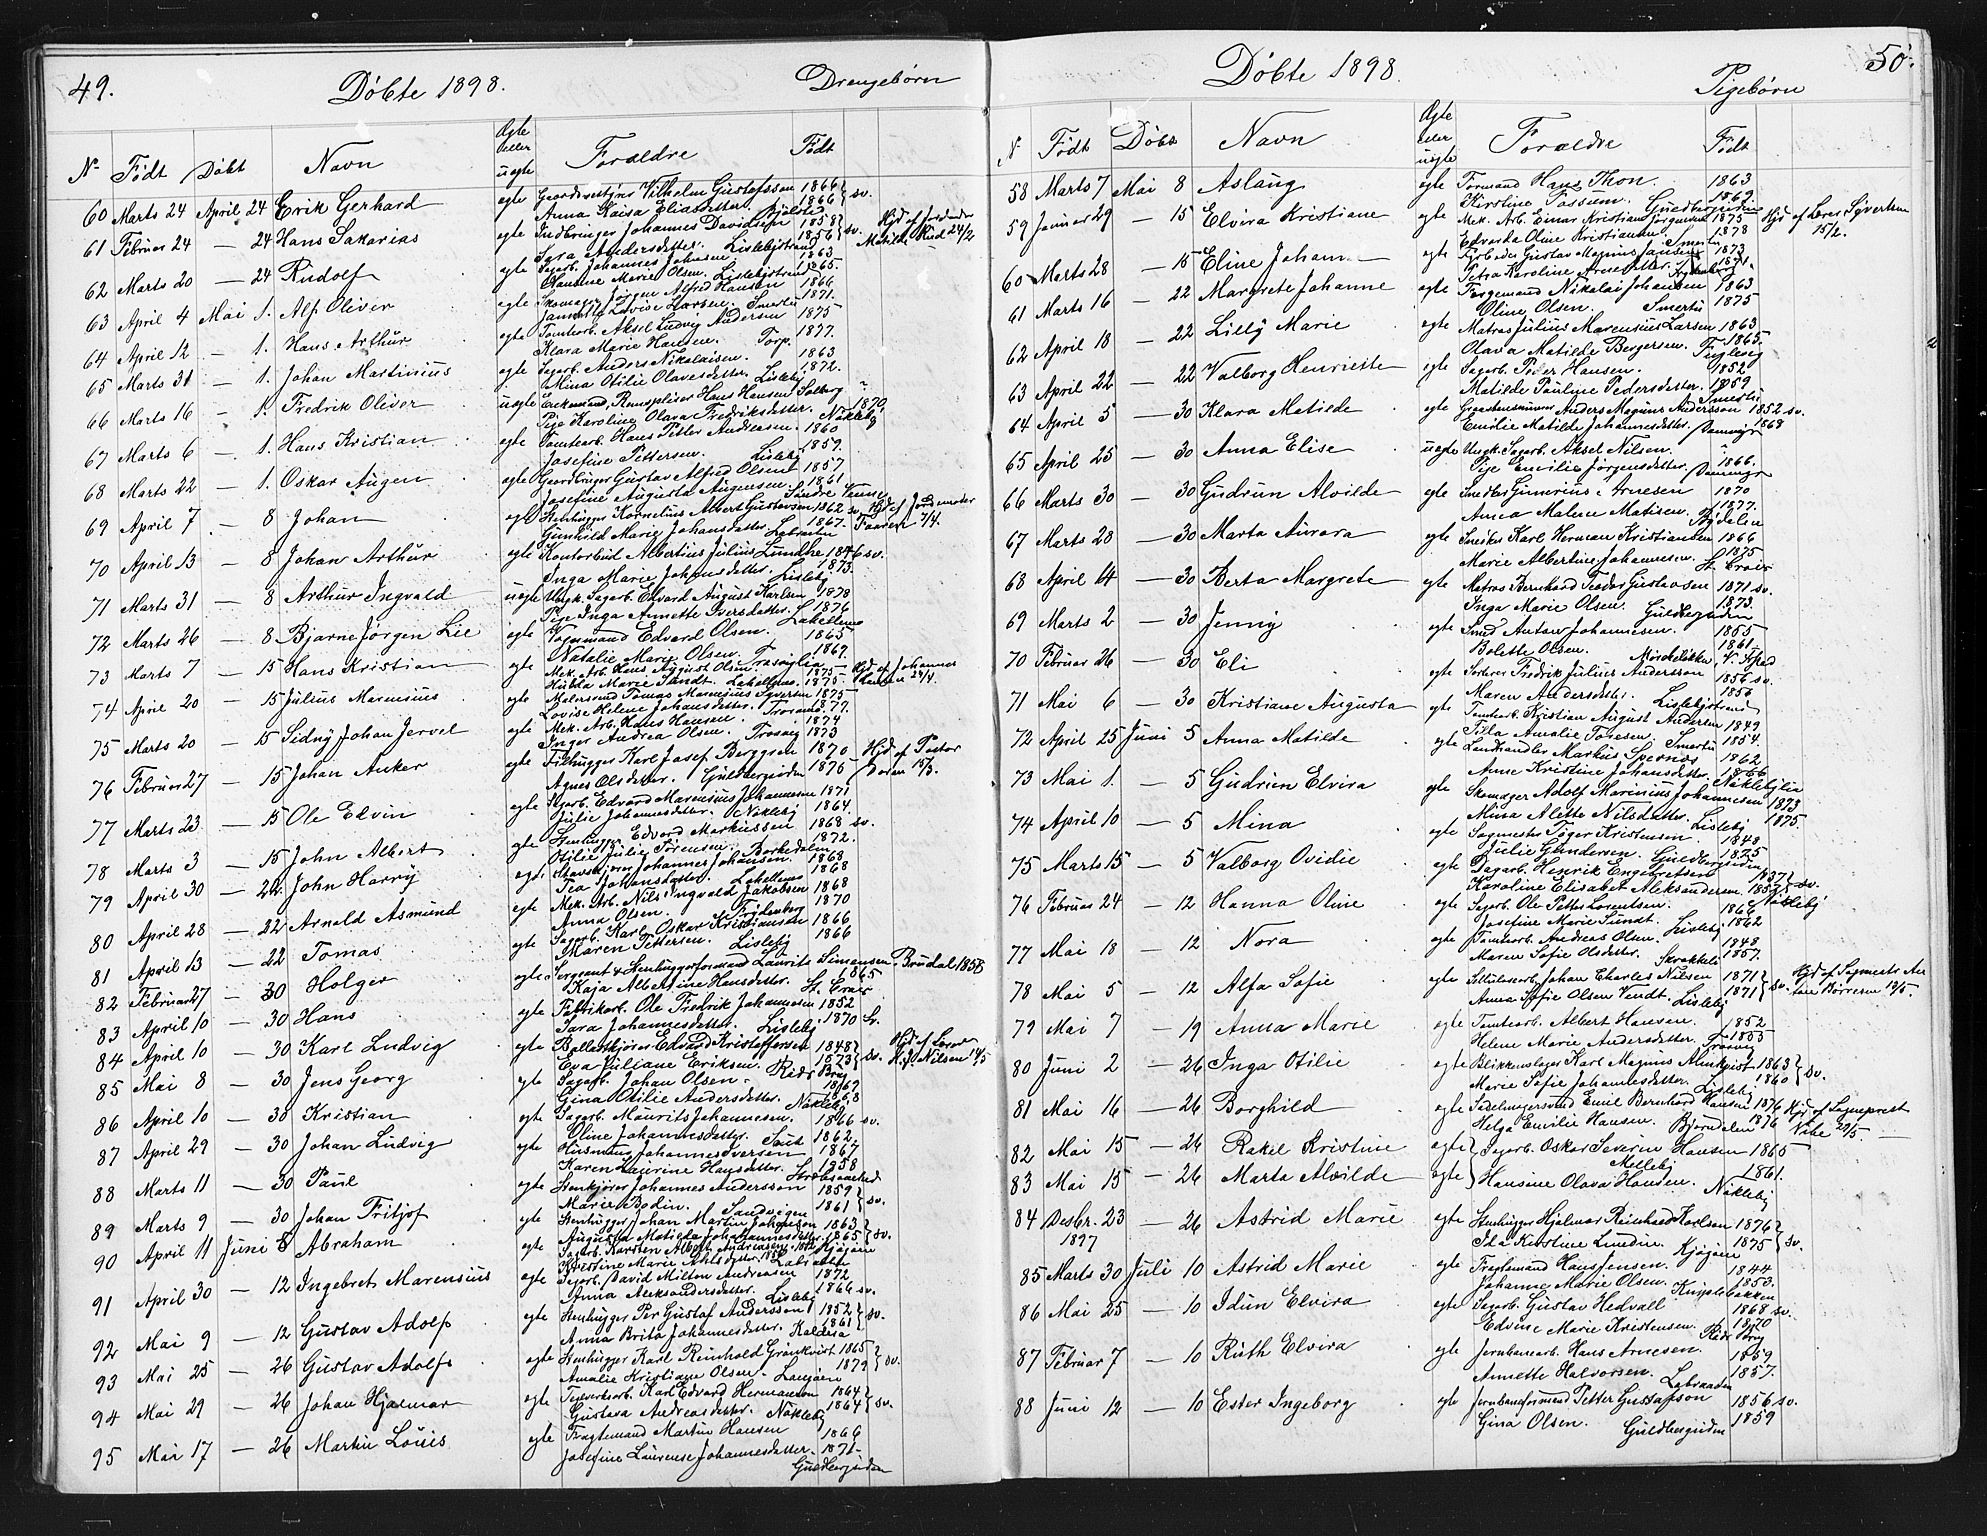 49.
Döbte 1898.
Drengebörn
N. Födt Döbt Navn Ægte eller uegte Foraldre Födt
60 Marts 24 April 24 Erik Gerhard egte Vilhelm Gustafsson 1866 sv.
Anna Kaisa Eliasdatter. 1866
61 Februar 24 — 24 Hans Sakarias egte Indbringer Johannes Davidsen 1858 sv. Hjd. af Jordmoder
Sara Andersdatter. Lislebystrand 1856 Matilde Lind 24/2
62 Marts 20 — 24 Rudolf egte Sagarb. Johannes Johnsen 1863
Maurine Marie Olsen. Lislebystrand 1865.
63 April 4 Mai 1. Alf Oliver egte Skomager Jörgen Alfred Hansen 1866
Jannette Lovise Larsen. Smertu 1871.
64 April 12 — 1. Hans Arthur egte Tomtearb. Aksel Ludvig Andersen 1875
Klara Marie Hansen. Torp. 1877.
65 Marts 31 — 1. Johan Martinius egte Sagarb. Anders Nikolaisen. 1863
Mina Otilie Olavesdatter. Lisleby 1872.
66 Marts 16 — 1. Fredrik Oliver uegte Enkemand, Rempliser Hans Hansen Solberg
Pige Karoline Olava Fredriksdatter. Nökleby 1870
67 Marts 6 — 1. Hans Kristian egte Tomtearb. Hans Petter Andreasen. 1860
Josefine Pettersen. Lisleby 1859.
68 Marts 22 — 1. Oskar Augen egte Gustav Alfred Olsen 1857
Josefine Augusta Augensen. 1861
69 April 7 — 8 Johan egte Stenhugger Kornelius Albert Gustavsen 1862 sv. Hjd. af Jordmoder
Gunhild Marie Johansdatter. Labraaten 1867. 7/4.
70 April 13 — 8 Johan Arthur egte Kontorbud Albertius Julius Lundhe 1846 sv.
Inga Marie Johansdatter. Lisleby 1873.
71 Marts 31 — 8 Arthur Ingvald uegte Ungk. Sagarb. Edvard August Karlsen 1878
Pige Inga Annette Iversdatter. Lahellene 1876
72 Marts 26 — 8 Bjarne Jörgen Lie egte Vognmand Edvard Olsen. 1865
Natalie Marie Olsen. 1869.
73 Marts 7 — 15 Hans Kristian egte Mek. Arb. Hans August Olsen 1875 Hjd. af Johannes
Hulda Marie Sandt. Lahellene. 1875
74 April 20 — 15 Julius Marensius egte Malersvend Tomas Marensius Syversen 1875
Lovise Helene Johansdatter. Trosvik 1877.
75 Marts 20 — 15 Sidny Johan Jervel egte Mek. Arb. Hans Hansen. 1874
Inger Andrea Olsen. Trosvig 1873
76 Februar 27 — 15 Johan Anker egte Filhugger Karl Josef Berggren 1870 Hjd. af Pastor
Agnes Olsdatter. Guldbergsiden 1876 15/3.
77 Marts 23 — 15 Ole Elvin egte Sagarb. Edvard Marensius Johannesen 1871
Julie Johannesdatter. Nökleby 1864.
78 Marts 3 — 15 John Albert egte Stenhugger Edvard Markussen 1868 sv.
Otilie Julie Sörensen. Borkedalen 1872.
79 April 30 — 22 John Harry egte Johannes Johansen. 1868
Tea Johansdatter. Lahellene 1868
80 April 28 — 22 Arnold Asmund egte Mek. Arb. Nils Ingvald Jakobsen 1868
Anna Olsen. Frydenberg 1870
81 April 13 — 22 Tomas egte Sagarb. Karl Oskar Kristiansen 1866
Maren Pettersen. Lisleby 1866
82 Februar 27 — 30 Holger egte Sergeant & Stenhuggerformand Laurits Simensen Brudal 1858
Kaja Albertine Hansdatter. St. Croix 1865
83 April 10 — 30 Hans egte Fabrikarb. Ole Fredrik Johannesen 1852
Sara Johannesdatter. Lisleby 1870 Sv.
84 April 10 — 30 Karl Ludvig egte Ballastkjörer Edvard Kristoffersen 1848 Hjd. af Lærer
Eva Juliane Eriksen. 1873 sv. Nilsen 14/5
85 Mai 8 — 30 Jens Georg egte Sagarb. Johan Olsen. Rids Brug 1869
Gina Otilie Andersdatter. 1868
86 April 10 — 30 Kristian egte Sagarb. Maurits Johannesen. Nökleby 1866 sv.
Oline Johannesdatter. 1862
87 April 29 — 30 Johan Ludvig egte Husmand Johannes Iversen 1867
Karen Laurine Hansdatter. 1858
88 Marts 11 — 30 Paul egte Stenkjörer Johannes Andersson 1859 sv.
Marie Bodin. Sandvigen 1861
89 Marts 9 — 30 Johan Fritjof egte Stenhugger Johan Martin Johnsson 1863 sv.
Augusta Matilda Johannesdatter. 1865
90 April 11 Juni 5 Abraham egte Sagarb. Karsten Albert Andreasen
Kristine Marie
91 April 30 — 12 Ingebret Marensius egte Sagarb. David Milton Andreasen 1872
Anna Aleksandersdatter. Lisleby 1866 sv.
92 Mai 9 — 12 Gustav Adolf egte Stenhugger Per Gustaf Andersson 1852 sv.
Anna Brita Johannesdatter. Kaldesa 1861
93 Mai 25 — 26 Gustav Adolf egte Stenhugger Karl Reinhold Grankvist 1865 sv.
Amalie Kristiane Olsen. 1879
94 Mai 29 — 26 Johan Hjalmar egte Teglverksarb. Karl Edvard Hermansen 1864 sv.
Gustava Andreasdatter. Nökleby 1864
95 Mai 17 — 26 Martin Louis egte Fragtemand Martin Hansen 1866
Josefine Laurense Johannesdatter. 1871
Guldbergsiden
50.
Döbte 1898.
Pigebörn
N Födt Döbt Navn Ægte eller uegte Foraldre Födt
58 Marts 7 Mai 8 Aslaug egte Formand Hans Thon. 1863
Kirstine Fossum. Guldbergsiden 1869
59 Januar 29 — 15 Elvira Kristiane egte Mek. Arb. Einar Kristian Jörgensen 1875 Hjd. af Lærer Syvertsen
Edvarda Oline Kristiansen. Smertu 1878 15/2.
60 Marts 28 — 15 Eline Johanne egte Gustav Magnus Jansen 1873
Petra Karoline Arnesdatter. 1871.
61 Marts 16 — 22 Margrete Johanne egte Færgemand Nikolai Johansen 1863
Oline Olsen. Smertu 1875
62 April 18 — 22 Lilly Marie egte Matros Julius Marensius Larsen 1863
Olava Matilde Bergersen. Fuglevig 1865.
63 April 22 — 22 Valborg Henriette egte Sagarb. Peder Hansen. 1852
Matilde Pauline Pedersdatter. Smertu 1859
64 April 5 — 30 Klara Matilde egte Anders Magnus Andersson 1852 sv.
Emilie Matilde Johannesdatter. Damvigen 1868
65 April 25 — 30 Anna Elise uegte Ungk. Sagarb. Aksel Nilsen.
Pige Emilie Jörgensdatter. Damvigen 1866.
66 Marts 30 — 30 Gudrun Alvilde egte Smed Gunerius Arnesen 1870
Anna Malene Matisen. Bydalen 1877.
67 Marts 28 — 30 Marta Aurora egte Snekker Karl Herman Kristiansen 1866
Marie Albertine Johannesen. St. Croix 1875
68 April 14 — 30 Berta Margrete egte Matros Bernhard Teodor Gustavsen 1871 sv.
Inga Marie Olsen. Guldbergsiden 1873.
69 Marts 2 — 30 Jenny egte Smed Anton Johannesen. 1855
Bolette Olsen. 1861.
70 Februar 26 — 30 Eli egte Sorterer Fredrik Julius Andersson 1856 sv.
Maren Andersdatter. Lislebystrand 1856
71 Mai 6 — 30 Kristiane Augusta egte Tomtearb. Kristian August Andersen 1849
Tilla Amalie Toresen. Smertu 1854.
72 April 25 Juni 5 Anna Matilde egte Landhandler Markus Spernes 1862
Anne Kristine Johansdatter. Nöklebylia 1866
73 Mai 1. — 5 Gudrun Elvira egte Skomager Adolf Marinius Johannesen 1873
Mina Alette Nilsdatter. Lisleby 1875.
74 April 10 — 5 Mina egte Sagmester Töger Kristensen 1848
Julie Gundersen. Guldbergsiden
75 Marts 15 — 5 Valborg Ovidie egte Dagarb. Henrik Engebretsen 1837 sv.
Karoline Elisabet Aleksandersen 1857 Nökleby
76 Februar 24 — 12 Hanna Oline egte Sagarb. Ole Petter Lorentsen. 1866
Josefine Marie Sundt. Lisleby 1862
77 Mai 18 — 12 Nora egte Tomtearb. Andreas Olsen. 1848
Maren Sofie Olsdatter. Skrukkeli 1857.
78 Mai 5 — 12 Alfa Sofie egte Johan Charles Nilsen 1871 sv. Hjd. af Sagmester An
Anna Sofie Olsen Vendt. Lisleby 1871 ton Börresen 12/5.
79 Mai 7 — 19 Anna Marie egte Tomtearb. Albert Hansen. 1852
Helene Marie Andersdatter. Trosvig 1855
80 Juni 2 — 26 Inga Otilie egte Blikkenslager Karl Magnus Almkvist 1863 sv.
Marie Sofie Johannesdatter. Lisleby 1860
81 Mai 16 — 26 Borghild egte Sadelmagersvend Emil Bernhard Hansen 1876 Hjd. af Sogneprest
Helga Emilie Hansen. Bjorndalen 1876 29/5.
82 Mai 15 — 26 Rakel Kristine egte Sagarb. Oskar Severin Hansen 1865
Melleby
83 Mai 15 — 26 Marta Alvilde egte Hansine Olava Hansen. 1861.
Nökleby
84 Desbr. 23 — 26 Astrid Marie egte Stenhugger Hjalmar Reinhard Karlsen 1876 sv.
1897 Ida Kirstine Lundin. Kjöjöen 1875
85 Marts 30 Juli 10 Astrid Marie egte Fragtemand Hans Jensen. 1844
Johanne Marie Olsen. 1853.
86 Mai 25 — 10 Idun Elvira egte Sagarb. Gustav Hedvall 1868 sv.
Edvine Marie Kristensen. Rids Brug 1870
87 Februar 7 — 10 Ruth Elvira egte Jernbanearb. Hans Arnesen. 1859
Annette Halvorsen. Labraaten 1857.
88 Juni 12 — 10 Ester Ingeborg egte Jernbaneformand Petter Gustafson 1856 sv.
Gina Olsen. Guldbergsiden 1859